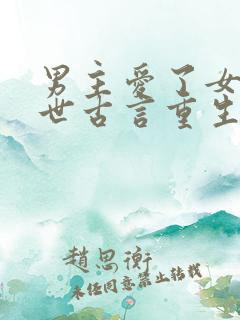 男主爱了女
世古言重生
赵思衡
未经同意禁止转载